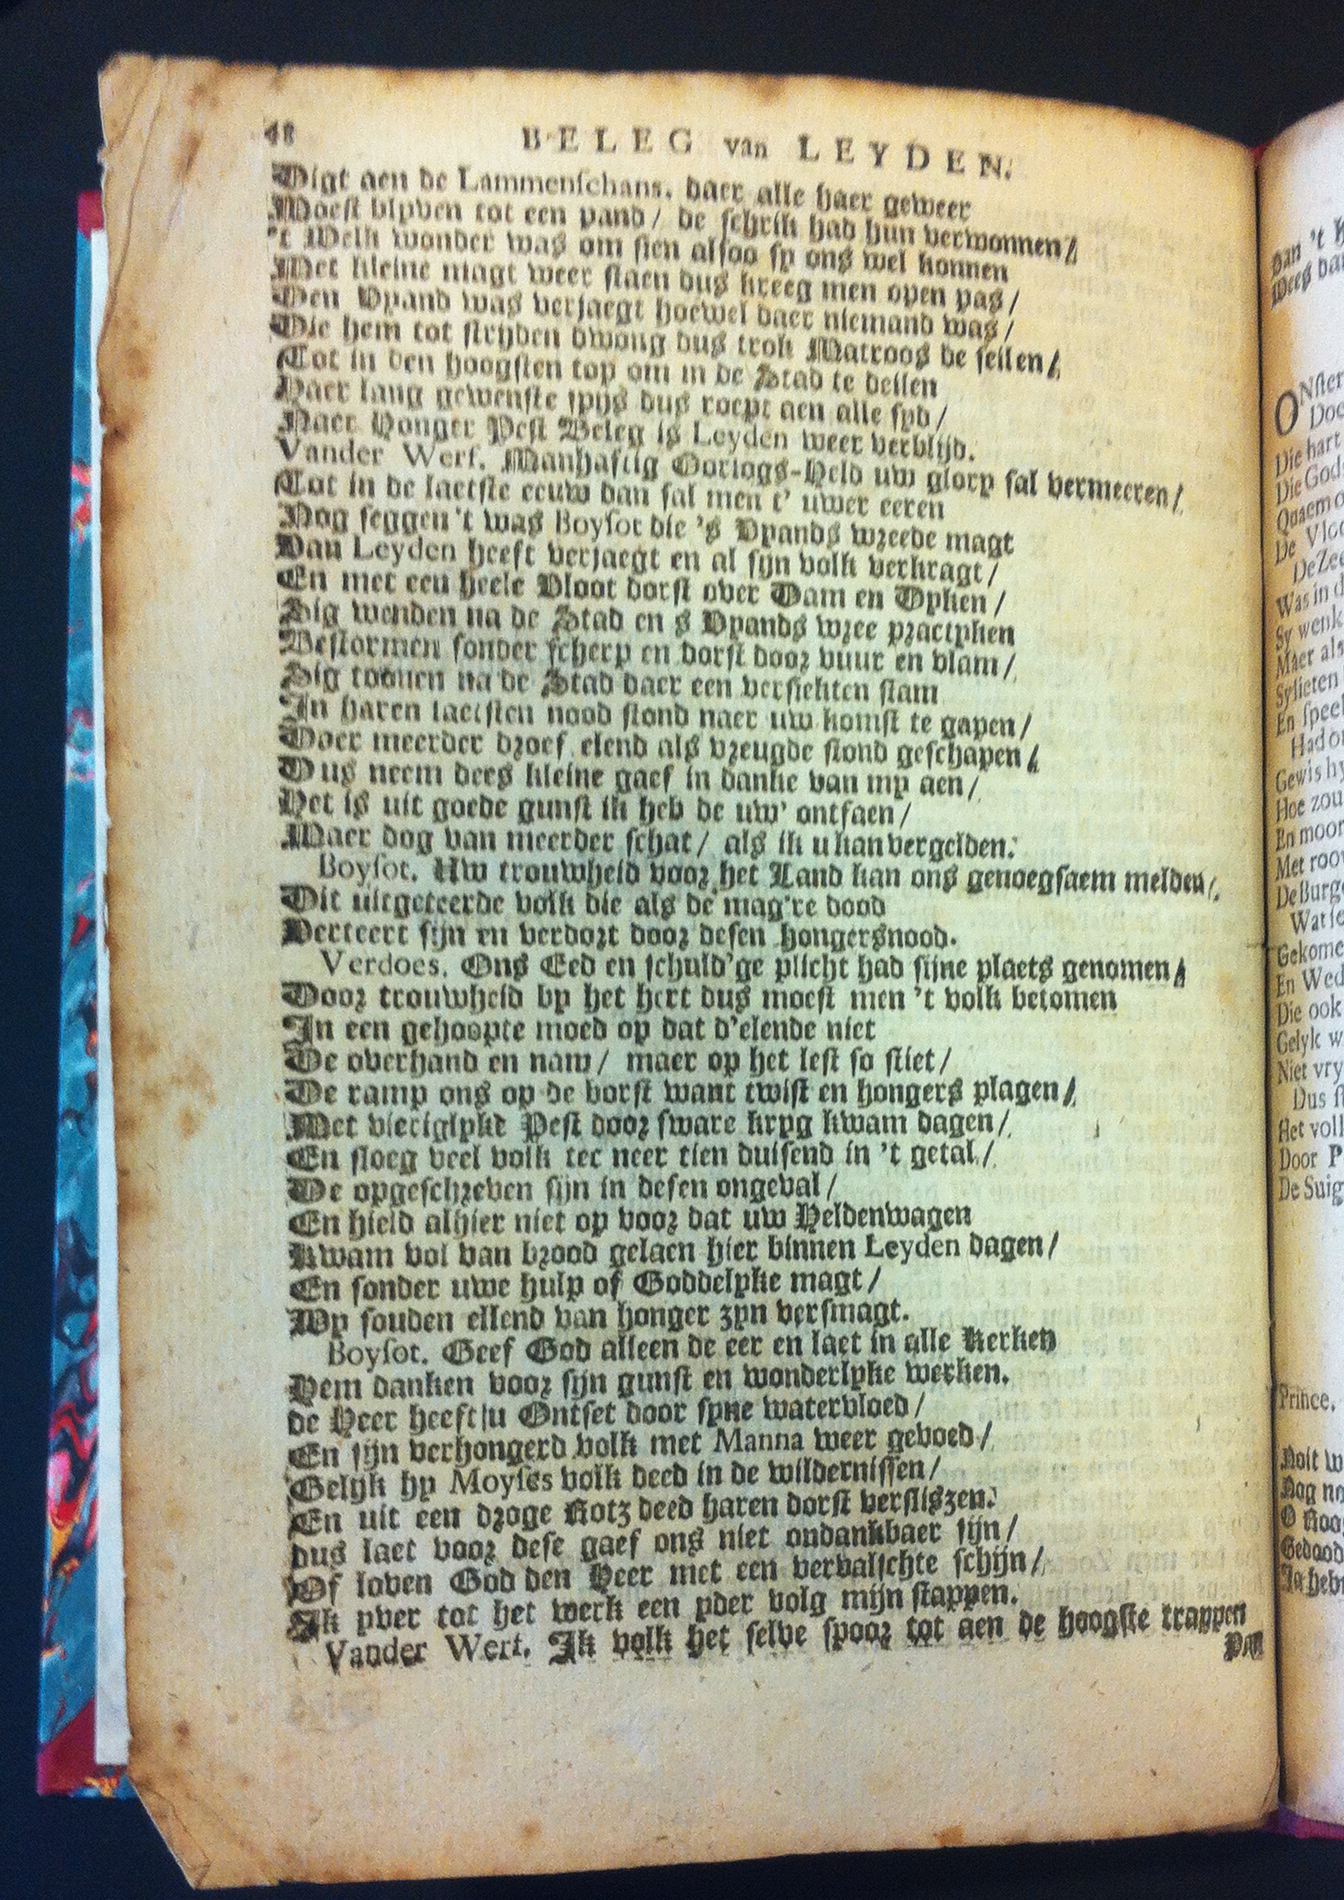 48 BELEG van LEYDEN.
Digt aen de Lammenschans. daer alle haer geweer
Moest blyven tot een pand/ de schrik had hun verwonnen/
't Welk wonder was om sien alsoo sy ons wel konnen
Met kleine magt weer staen dus kreeg men open pas/
Den Vyand was verjaegt hoewel daer niemand was/
Die hem tot stryden dwong dus trok Matroos de seilen/
Tot in den hoogsten top om in de Stad te deilen
Haer lang gewenste spijs dus roept aen alle syd/
Naer Honger Pest Beleg is Leyden weer verblijd.
Vander Werf. Manhaftig Oorlogs-Held uw glory sal vermeeren/
Tot in de laetste eeuw dan sal men t' uwer eeren
Nog seggen 't was Boysot die 's Vyands wreede magt
Van Leyden heeft verjaegt en al sijn volk verkragt/
En met een heele Vloot dorst over Dam en Dyken/
Sig wenden na de Stad en s Vyands wree practyken
Bestormen sonder scherp en dorst door vuur en vlam/
Sig toonen na de Stad daer een versiekten stam
In haren laetsten nood stond naer uw komst te gapen/
Daer meerder droef elend als vreugde stond geschapen/
Dus neem dees kleine gaef in danke van my aen/
Het is uit goede gunst ik heb de uw' ontfaen/
Maer dog van meerder schat/ als ik u kan vergelden.
Boysot. Uw trouwheid voor het Land kan ons genoegsaem melden/
Dit uitgeteerde volk die als de mag're dood
Verteert sijn en verdort door desen hongersnood.
Verdoes. Ons Eed en schuld'ge plicht had sijne plaets genomen/
Door trouwheid by het hert dus moest men 't volk betomen
In een gehoopte moed op dat d'elende niet
De overhand en nam/ maer op het lest so stiet/
De ramp ons op de borst want twist en hongers plagen/
Met vieriglyke Pest door sware kryg kwam dagen/
En sloeg veel volk ter neer tien duisend in 't getal/
De opgeschreven sijn in desen ongeval/
En hield alhier niet op voor dat uw Heldenwagen
Kwam vol van brood gelaen hier binnen Leyden dagen/
En sonder uwe hulp of Goddelyke magt/
Wy souden ellend van honger zyn versmagt.
Boysot. Geef God alleen de eer en laet in alle Kerken
Hem danken voor sijn gunst en wonderlyke werken.
de Heer heeft u Ontset door syne watervloed/
En sijn verhongerd volk met Manna weer gevoed/
Gelijk hy Moyses volk deed in de wildernissen/
En uit een droge Rotz deed haren dorst versliszen.
dus laet voor dese gaef ons niet ondankbaer sijn/
Of loven God den Heer met een vervalschte schijn/
Ik yver tot het werk een yder volg mijn stappen.
Vander Werf. Ik volk het selve spoor tot aen de hoogste trappen
Van 't
ONster
Die hart
Die God
De Vloo
De Zee
Was in d
Sy wenk
Maer als
Sylieten
En speel
Had on
Gewis hy
Hoe zou
En moor
Met roo
De Burge
Gekome
En Wed
Die ook
Gelyk w
Niet vry
Dus
Het voll
Door P
De Suig
Prince.
Noit w
Nog no
Gedood